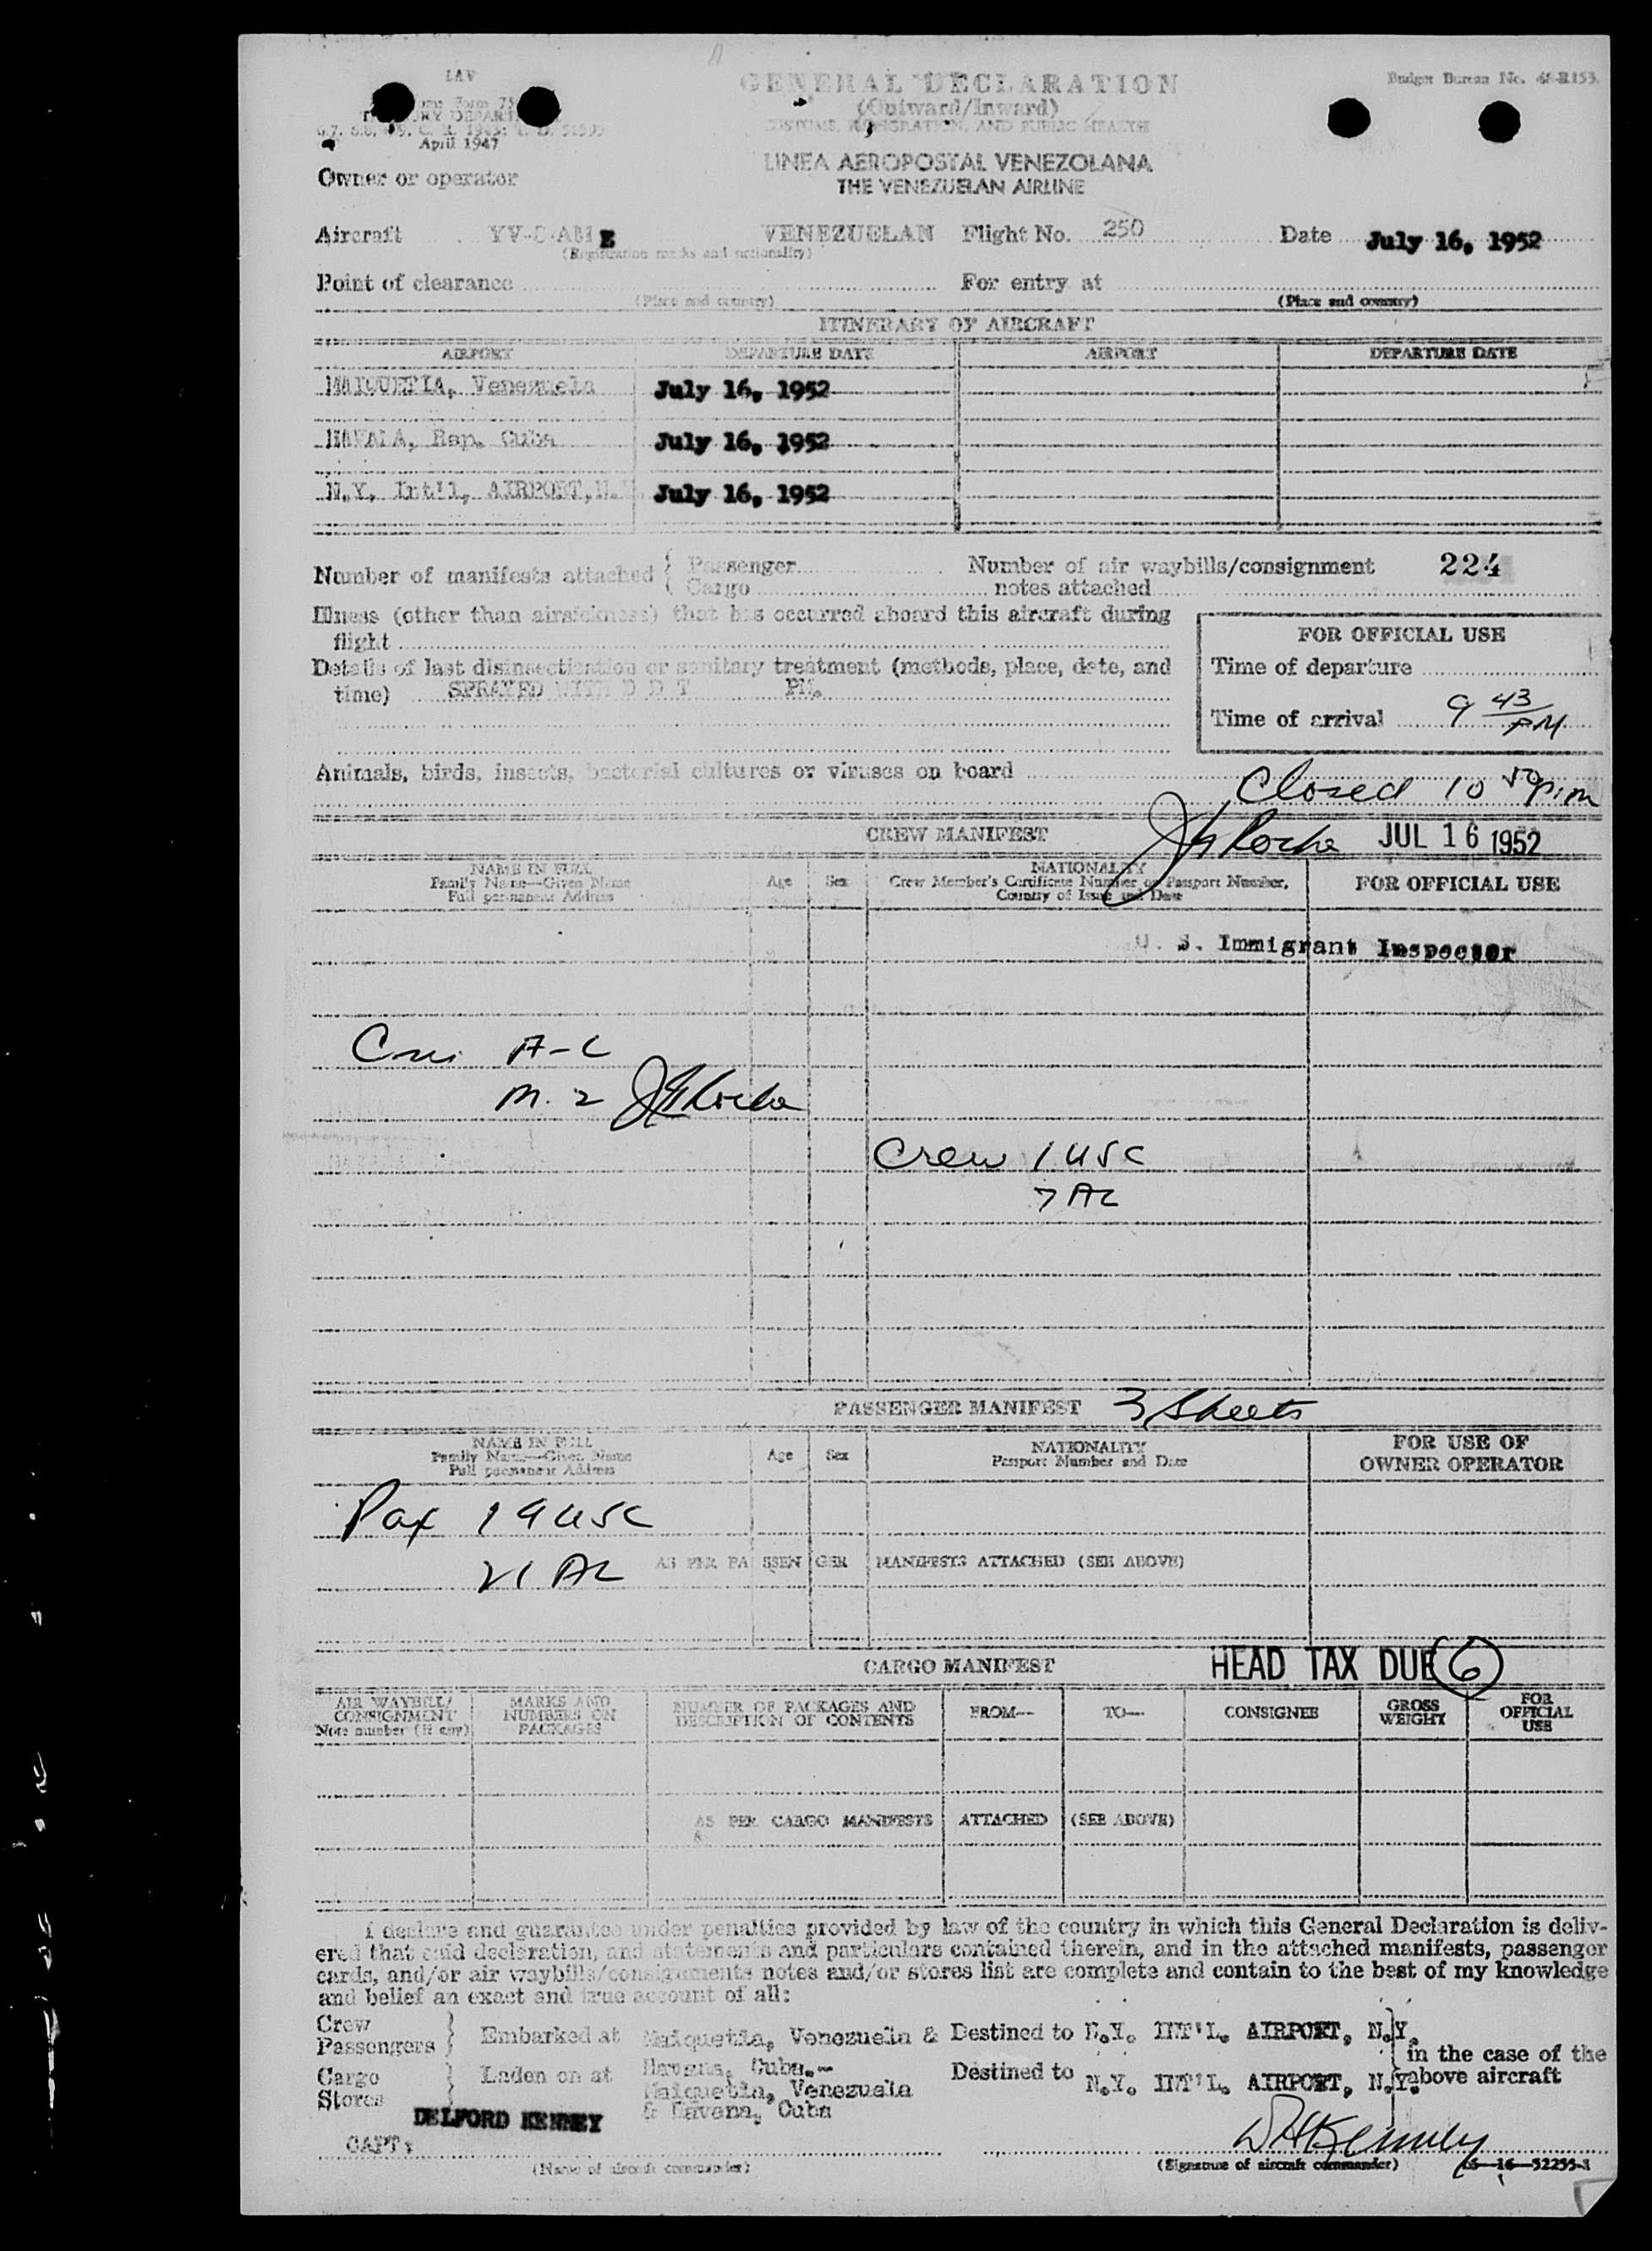 LAV
GENERAL DECLARATION
Budget Bureau No. 48-R153.
(Outward/Inward)
CUSTOMS, IMMIGRATION, AND PUBLIC HEALTH
April 1947
LINEA AEROPOSTAL VENEZOLANA
Owner or operator
THE VENEZUELAN AIRLINE
Aircraft YV-C-AME VENEZUELAN Flight No. 250 Date July 16, 1952
(Registration marks and nationality)
Point of clearance For entry at
(Place and country) (Place and country)
ITINERARY OF AIRCRAFT
AIRPORT DEPARTURE DATE AIRPORT DEPARTURE DATE
MAIQUETIA, Venezuela July 16, 1952
HAVANA, Rep. Cuba July 16, 1952
N.Y. Int'l, AIRPORT, N.Y July 16, 1952
Number of manifests attached { Passenger Number of air waybills/consignment 224
Cargo notes attached
Illness (other than airsickness) that has occurred aboard this aircraft during
flight
FOR OFFICIAL USE
Details of last disinsectization or sanitary treatment (methods, place, date, and
time) SPRAYED WITH D D T PM.
Time of departure
Time of arrival 9 43 PM
Animals, birds, insects, bacterial cultures or viruses on board
Closed 10 50 p.m
CREW MANIFEST JUL 16 1952
NAME IN FULL
Family Name—Given Name
Full permanent Address
Age Sex
NATIONALITY
Crew Member's Certificate Number or Passport Number,
Country of Issue and Date
FOR OFFICIAL USE
U. S. Immigrant Inspector
A-L
M. 2
Crew 1 USC
7 AL
PASSENGER MANIFEST 3 Sheets
NAME IN FULL
Family Name—Given Name
Full permanent Address
Age Sex
NATIONALITY
Passport Number and Date
FOR USE OF
OWNER OPERATOR
Pax 19 USC
21 AL
AS PER PASSENGER MANIFESTS ATTACHED (SEE ABOVE)
CARGO MANIFEST HEAD TAX DUE 6
AIR WAYBILL/
CONSIGNMENT
Note number (if any)
MARKS AND
NUMBERS ON
PACKAGES
NUMBER OF PACKAGES AND
DESCRIPTION OF CONTENTS
FROM—
TO—
CONSIGNEE
GROSS
WEIGHT
FOR
OFFICIAL
USE
AS PER CARGO MANIFESTS ATTACHED (SEE ABOVE)
I declare and guarantee under penalties provided by law of the country in which this General Declaration is deliv-
ered that said declaration, and statements and particulars contained therein, and in the attached manifests, passenger
cards, and/or air waybills/consignments notes and/or stores list are complete and contain to the best of my knowledge
and belief an exact and true account of all:
Crew
Passengers } Embarked at Maiquetia, Venezuela & Destined to N.Y. INT'L. AIRPORT, N.Y.
Havana, Cuba.-
in the case of the
Cargo
Stores } Laden on at Maiquetia, Venezuela Destined to N.Y. INT'L. AIRPORT, N.Y. above aircraft
& Havana, Cuba
DELFORD KENNEY
CAPT:
(Name of aircraft commander) (Signature of aircraft commander) 16—52255-1